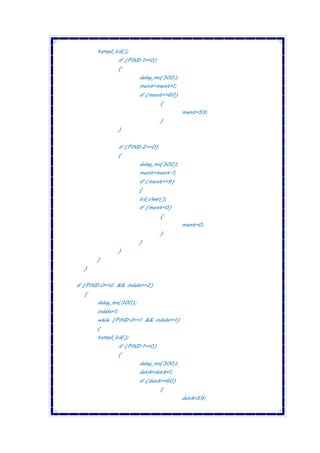 tampil_lcd();
if (PIND.1==0)
{
delay_ms(300);
menit=menit+1;
if (menit==60)
{
menit=59;
}
}
if (PIND.2==0)
{
delay_ms(300);
menit=menit-1;
if (menit==9)
{
lcd_clear();
if (menit<0)
{
menit=0;
}
}
}
}
}
if (PIND.0==0 && indeks==2)
{
delay_ms(300);
indeks=1;
while (PIND.0==1 && indeks==1)
{
tampil_lcd();
if (PIND.1==0)
{
delay_ms(300);
detik=detik+1;
if (detik==60)
{
detik=59;